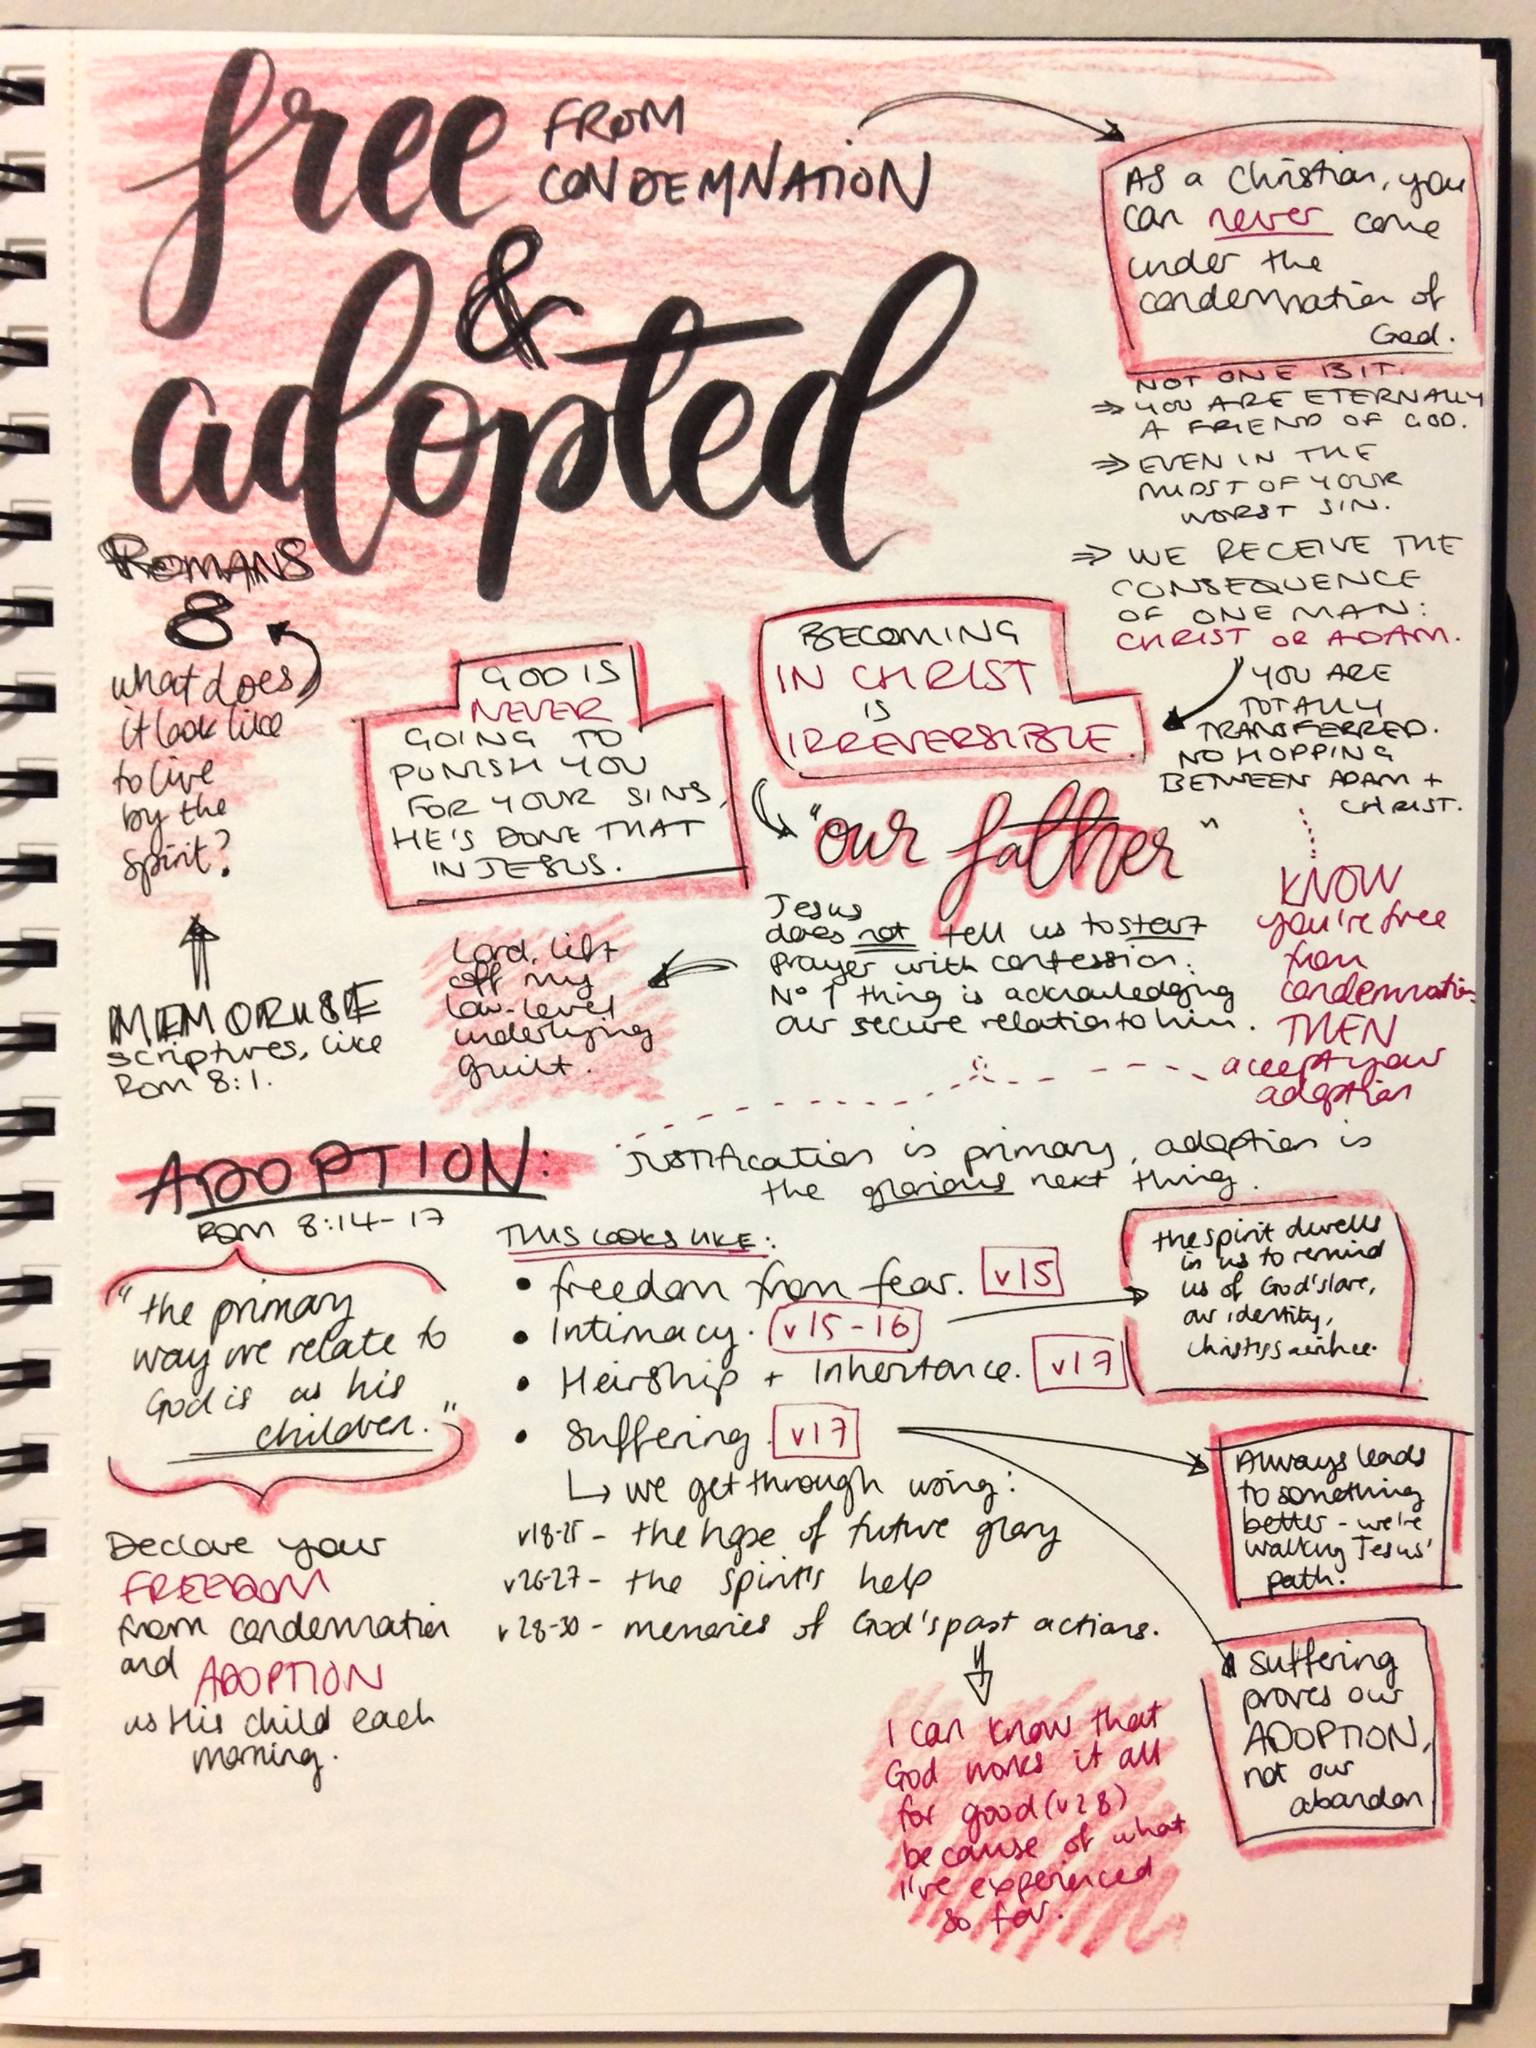 free
FROM
CONDEMNATION
&
adopted
As a Christian, you
can never come
under the
condemnation of
God.
NOT ONE BIT.
⇒ YOU ARE ETERNALLY
A FRIEND OF GOD.
⇒ EVEN IN THE
MIDST OF YOUR
WORST SIN.
⇒ WE RECEIVE THE
CONSEQUENCE
OF ONE MAN:
CHRIST OR ADAM.
YOU ARE
TOTALLY
TRANSFERRED.
NO HOPPING
BETWEEN ADAM +
CHRIST.
ROMANS
8
what does
it look like
to live
by the
Spirit?
MEMORISE
scriptures, like
Rom 8:1.
GOD IS
NEVER
GOING TO
PUNISH YOU
FOR YOUR SINS,
HE'S DONE THAT
IN JESUS.
BECOMING
IN CHRIST
IS
IRREVERSIBLE.
"our father"
Jesus
does not tell us to start
prayer with confession.
No 1 thing is acknowledging
our secure relation to him.
Lord, lift
off my
low-level
underlying
guilt.
KNOW
you're free
from
condemnation
THEN
accept your
adoption
ADOPTION:
Rom 8:14-17
Justification is primary, adoption is
the glorious next thing.
"the primary
way we relate to
God is as his
children."
Declare your
FREEDOM
from condemnation
and ADOPTION
as His child each
morning.
THIS LOOKS LIKE:
• freedom from fear. v15
• Intimacy. v15-16
• Heirship + Inheritance. v17
• Suffering. v17
↳ we get through using:
v18-25 - the hope of future glory
v26-27 - the spirit's help
v28-30 - memories of God's past actions.
I can know that
God works it all
for good (v28)
because of what
I've experienced
so far.
the spirit dwells
in us to remind
us of God's love,
our identity,
Always leads
to something
better - we're
walking Jesus'
path.
suffering
proves our
ADOPTION,
not our
abandon